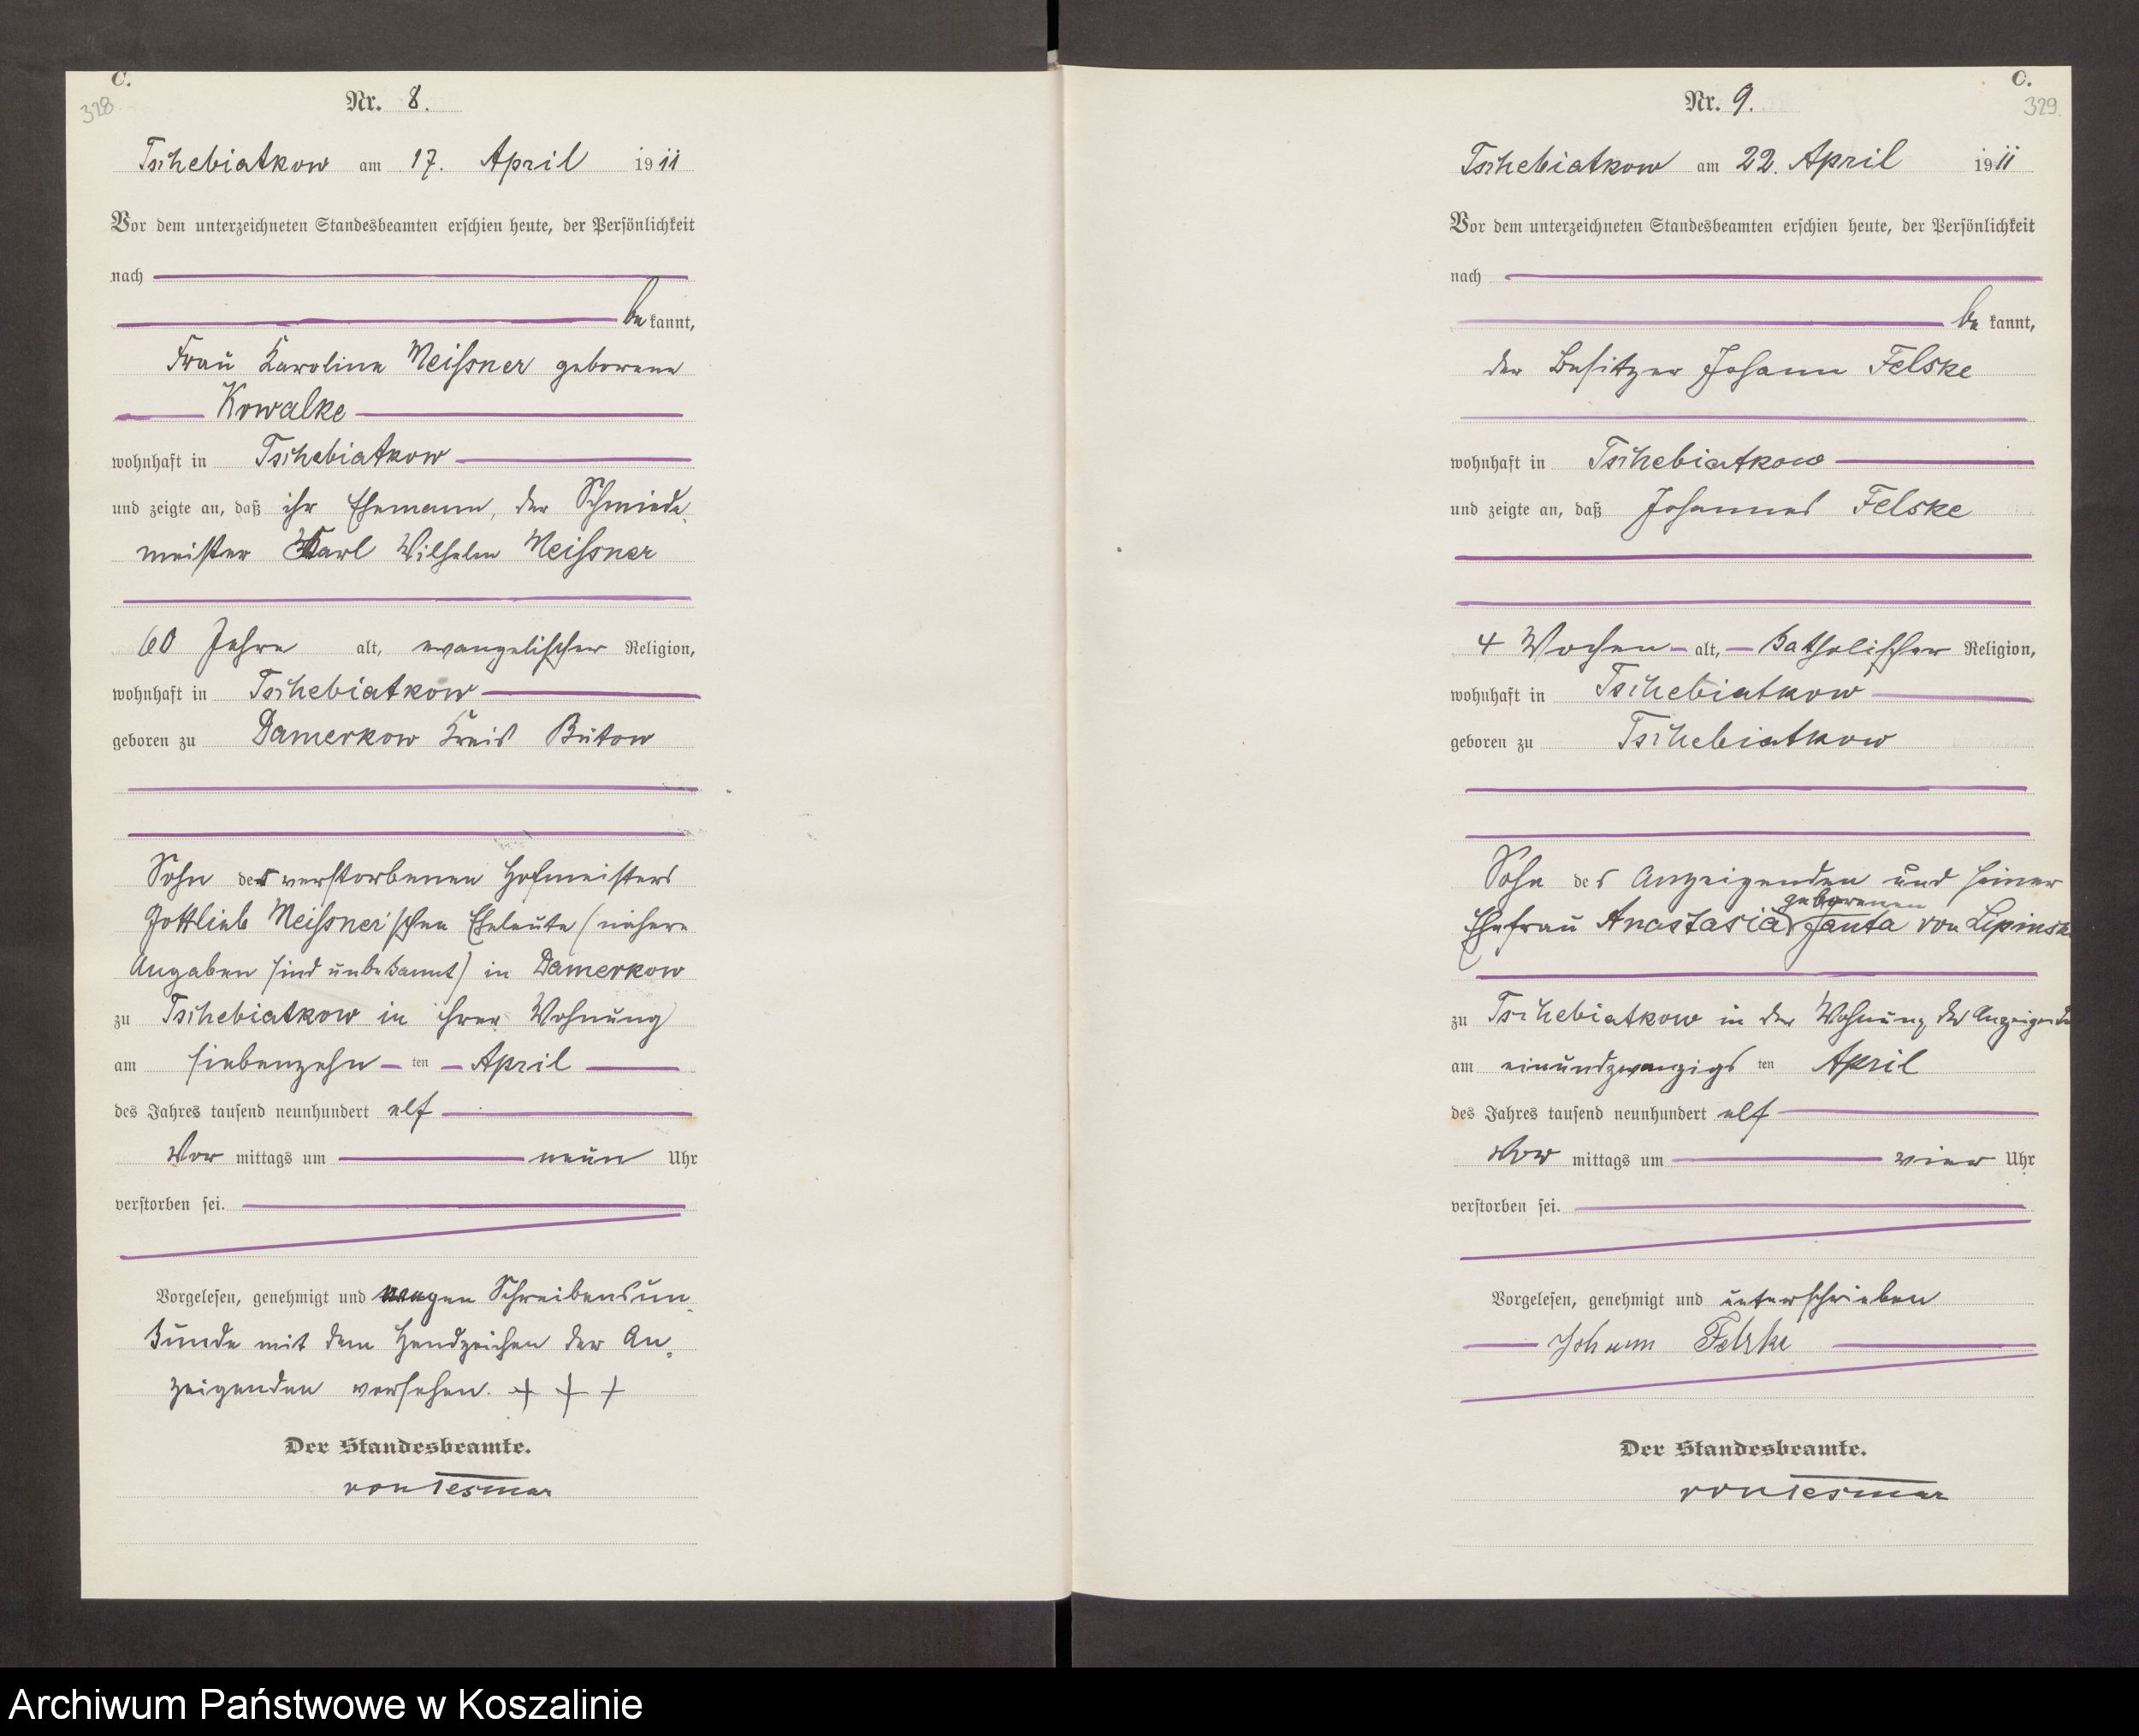 C.
328
Nr. 8.
Tschebiatkow am 17. April 1911
Vor dem unterzeichneten Standesbeamten erschien heute, der Persönlichkeit
nach
be kannt,
Frau Karoline Meißner geborene
Kowalke
wohnhaft in Tschebiatkow
und zeigte an, daß ihr Ehemann, der Schmiede-
meister Karl Wilhelm Meißner
60 Jahre alt, evangelischer Religion,
wohnhaft in Tschebiatkow
geboren zu Damerkow Kreis Bütow
Sohn der verstorbenen Hofmeisters
Gottlieb Meißner'schen Eheleute (nähere
Angaben sind unbekannt) in Damerkow
zu Tschebiatkow in ihrer Wohnung
am siebenzehn ten April
des Jahres tausend neunhundert elf
Vor mittags um neun Uhr
verstorben sei.
Vorgelesen, genehmigt und wegen Schreibensun-
kunde mit dem Handzeichen der An-
zeigenden versehen. + + +
Der Standesbeamte.
von Tesmar
C.
329.
Nr. 9.
Tschebiatkow am 22. April 1911
Vor dem unterzeichneten Standesbeamten erschien heute, der Persönlichkeit
nach
be kannt,
der Besitzer Johann Felske
wohnhaft in Tschebiatkow
und zeigte an, daß Johannes Felske
4 Wochen alt, katholischer Religion,
wohnhaft in Tschebiatkow
geboren zu Tschebiatkow
Sohn des Anzeigenden und seiner
geborenen
Ehefrau Anastasia Janta von Lipinski
zu Tschebiatkow in der Wohnung des Anzeigenden
am einundzwanzigs ten April
des Jahres tausend neunhundert elf
Vor mittags um vier Uhr
verstorben sei.
Vorgelesen, genehmigt und unterschrieben
Johann Felske
Der Standesbeamte.
von Tesmar
Archiwum Państwowe w Koszalinie